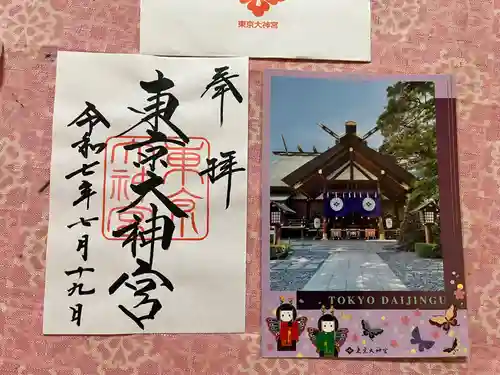 東京大神宮
奉拝
東京大神宮
東京大神宮
令和七年七月十九日
TOKYO DAIJINGU
東京大神宮